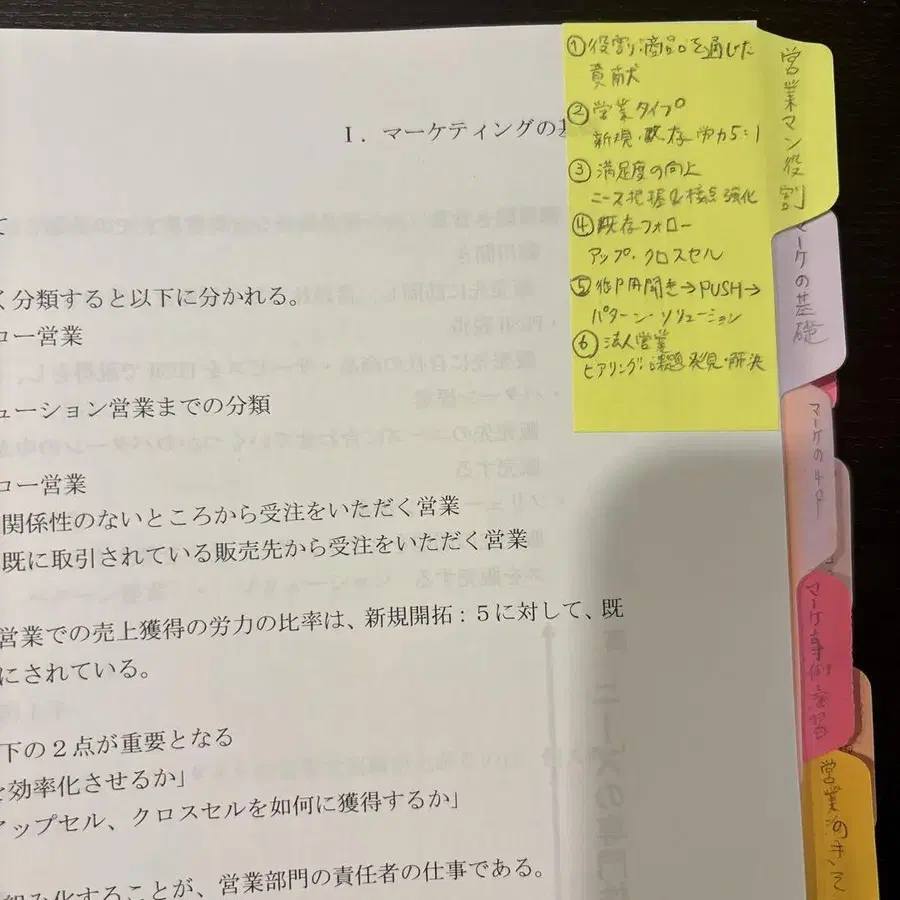 I．マーケティングの基
て
く分類すると以下に分かれる。
ロー営業
ューション営業までの分類
ロー営業
関係性のないところから受注をいただく営業
既に取引されている販売先から受注をいただく営業
営業での売上獲得の労力の比率は、新規開拓：５に対して、既
にされている。
下の２点が重要となる
を効率化させるか」
アップセル、クロスセルを如何に獲得するか」
組み化することが、営業部門の責任者の仕事である。
①役割:商品を通じた
貢献
②営業タイプ
新規・既存 労力5:1
③満足度の向上
ニーズ把握&接点強化
④既存フォロー
アップ・クロスセル
⑤御用聞き→PUSH→
パターン・ソリューション
⑥法人営業
ヒアリング:課題発見・解決
営業マン役割
マーケの基礎
マーケの4P
マーケ事例
営業